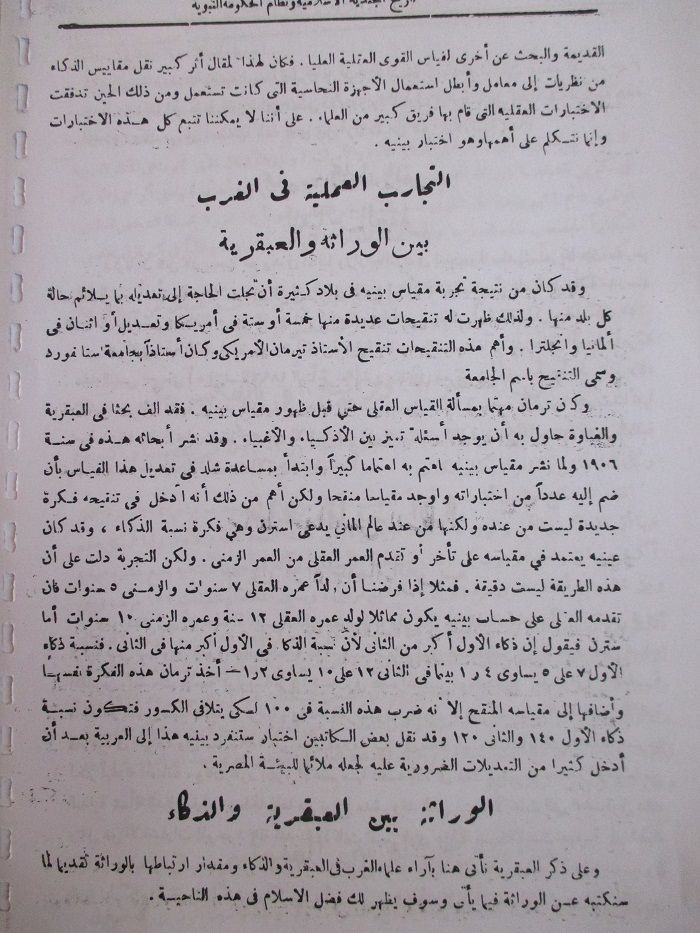 تاريخ الجندية الاسلامية ونظام الحكومة النبوية
القديمة والبحث عن أخرى لقياس القوى العقلية العليا . فكان لهذا المقال أثر كبير نقل مقاييس الذكاء
من نظريات إلى معامل وأبطل استعمال الأجهزة النحاسية التى كانت تستعمل ومن ذلك الحين تدفقت
الاختبارات العقليه التى قام بها فريق كبير من العلماء . على أننا لا يمكننا تتبع كل هـذه الاختبارات
وإنما نتكلم على أهمها وهو اختبار بينيه .
التجارب العملية فى الغرب
بين الوراثه والعبقرية
وقد كان من نتيجة تجربة مقياس بينيه فى بلاد كثيرة أن تجلت الحاجة إلى تعديله بما يلائم حالة
كل بلد منها . ولذلك ظهرت له تنقيحات عديدة منها خمسة أو ستة فى أمريكا وتعديل أو اثنان فى
ألمانيا وانجلترا . وأهم هذه التنقيحات تنقيح الأستاذ تيرمان الأمريكى وكان أستاذاً بجامعة ستانفورد
وسمى التنقيح باسم الجامعة
وكن ترمان مهتما بمسألة القياس العقلى حتى قبل ظهور مقياس بينيه . فقد الف بحثا فى العبقرية
والغباوة حاول به أن يوجد أسئلة تميز بين الأذكياء والأغبياء . وقد نشر أبحاثه هـذه فى سنـة
١٩٠٦ ولما نشر مقياس بينيه اهتم به اهتماما كبيراً وابتدأ بمساعدة شلد فى تعديل هذا القياس بأن
ضم إليه عدداً من اختباراته واوجد مقياسا منقحا ولكن أهم من ذلك أنه أدخل فى تنقيحه فـكرة
جديدة ليست من عنده ولكنها من عند عالم المانى يدعى استرن وهي فكرة نسبة الذكاء ، وقد كان
عينيه يعتمد في مقياسه على تأخر أو تقدم العمر العقلى من العمر الزمنى . ولكن التجربة دلت على أن
هذه الطريقة ليست دقيقة . فمثلا إذا فرضنا أن ولداً عمره العقلى ٧ سنوات والزمنى ٥ سنوات فان
تقدمه العقلى على حساب بينيه يكون مماثلا لولد عمره العقلى ١٢ سنة وعمره الزمنى ١٠ سنوات أما
سترن فيقول إن ذكاء الأول أكبر من الثانى لأن نسبة الذكاء فى الأول أكبر منها فى الثانى . فنسبة ذكاء
الأول ٧ على ٥ يساوى ٤ ر ١ بينما فى الثانى ١٢ على ١٠ يساوى ٢ ر ١ — أخذ ترمان هذه الفكرة نفسها
وأضافها إلى مقياسه المنقح إلا أنه ضرب هذه النسبة فى ١٠٠ لـكى يتلافى الكسور فتكون نسبـة
ذكاء الأول ١٤٠ والثانى ١٢٠ وقد نقل بعض الكاتبين اختبار ستنفرد بينيه هذا إلى العربية بعـد أن
أدخل كثيرا من التعديلات الضرورية عليه لجعله ملائما للبيئـة المصرية .
الوراثة بين العبقرية والذكاء
وعلى ذكر العبقرية نأتى هنا بآراء علماء الغرب فى العبقرية والذكاء ومقدار ارتباطها بالوراثة تقديما لما
سنكتبه عـن الوراثة فيما يأتى وسوف يظهر لك فضل الاسلام فى هذه الناحيـة .